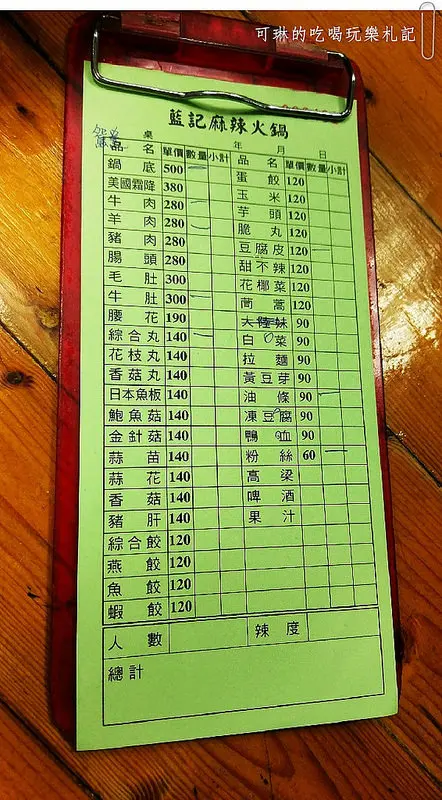 可琳的吃喝玩樂札記
藍記麻辣火鍋
鴛鴦 桌 年 月 日
品名 單價 數量 小計
鍋底 500
美國霜降 380
牛肉 280
羊肉 280
豬肉 280
腸頭 280
毛肚 300
牛肚 300
腰花 190
綜合丸 140
花枝丸 140
香菇丸 140
日本魚板 140
鮑魚菇 140
金針菇 140
蒜苗 140
蒜花 140
香菇 140
豬肝 140
綜合餃 120
燕餃 120
魚餃 120
蝦餃 120
品名 單價 數量 小計
蛋餃 120
玉米 120
芋頭 120
脆丸 120
豆腐皮 120
甜不辣 120
花椰菜 120
茼蒿 120
大陸妹 90
白菜 90
拉麵 90
黃豆芽 90
油條 90
凍豆腐 90
鴨血 90
粉絲 60
高梁
啤酒
果汁
人數 辣度
總計